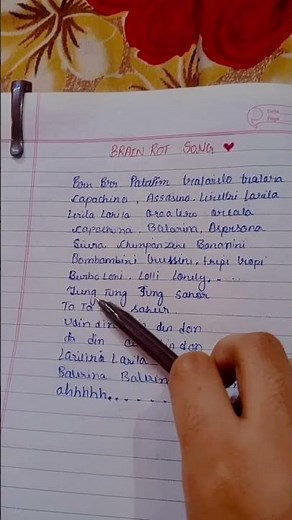 Date
Page
BRAIN ROT SONG
Brrr Brrr Patapim tralalelo tralala
Capachino, Assasino, Lirilri Larila
Lirila Larila
Capachina, Balarina, Aspersona
Chimpanzene Bananini
Bombombini Gussini, tropi tropi
Burbo Loni, Lolli Lonely....
Tung Tung Tung Sahor
Ta Ta Sahur
Udin din din don
din din don
Lariliria Larila
Balirina
ahhhhh........